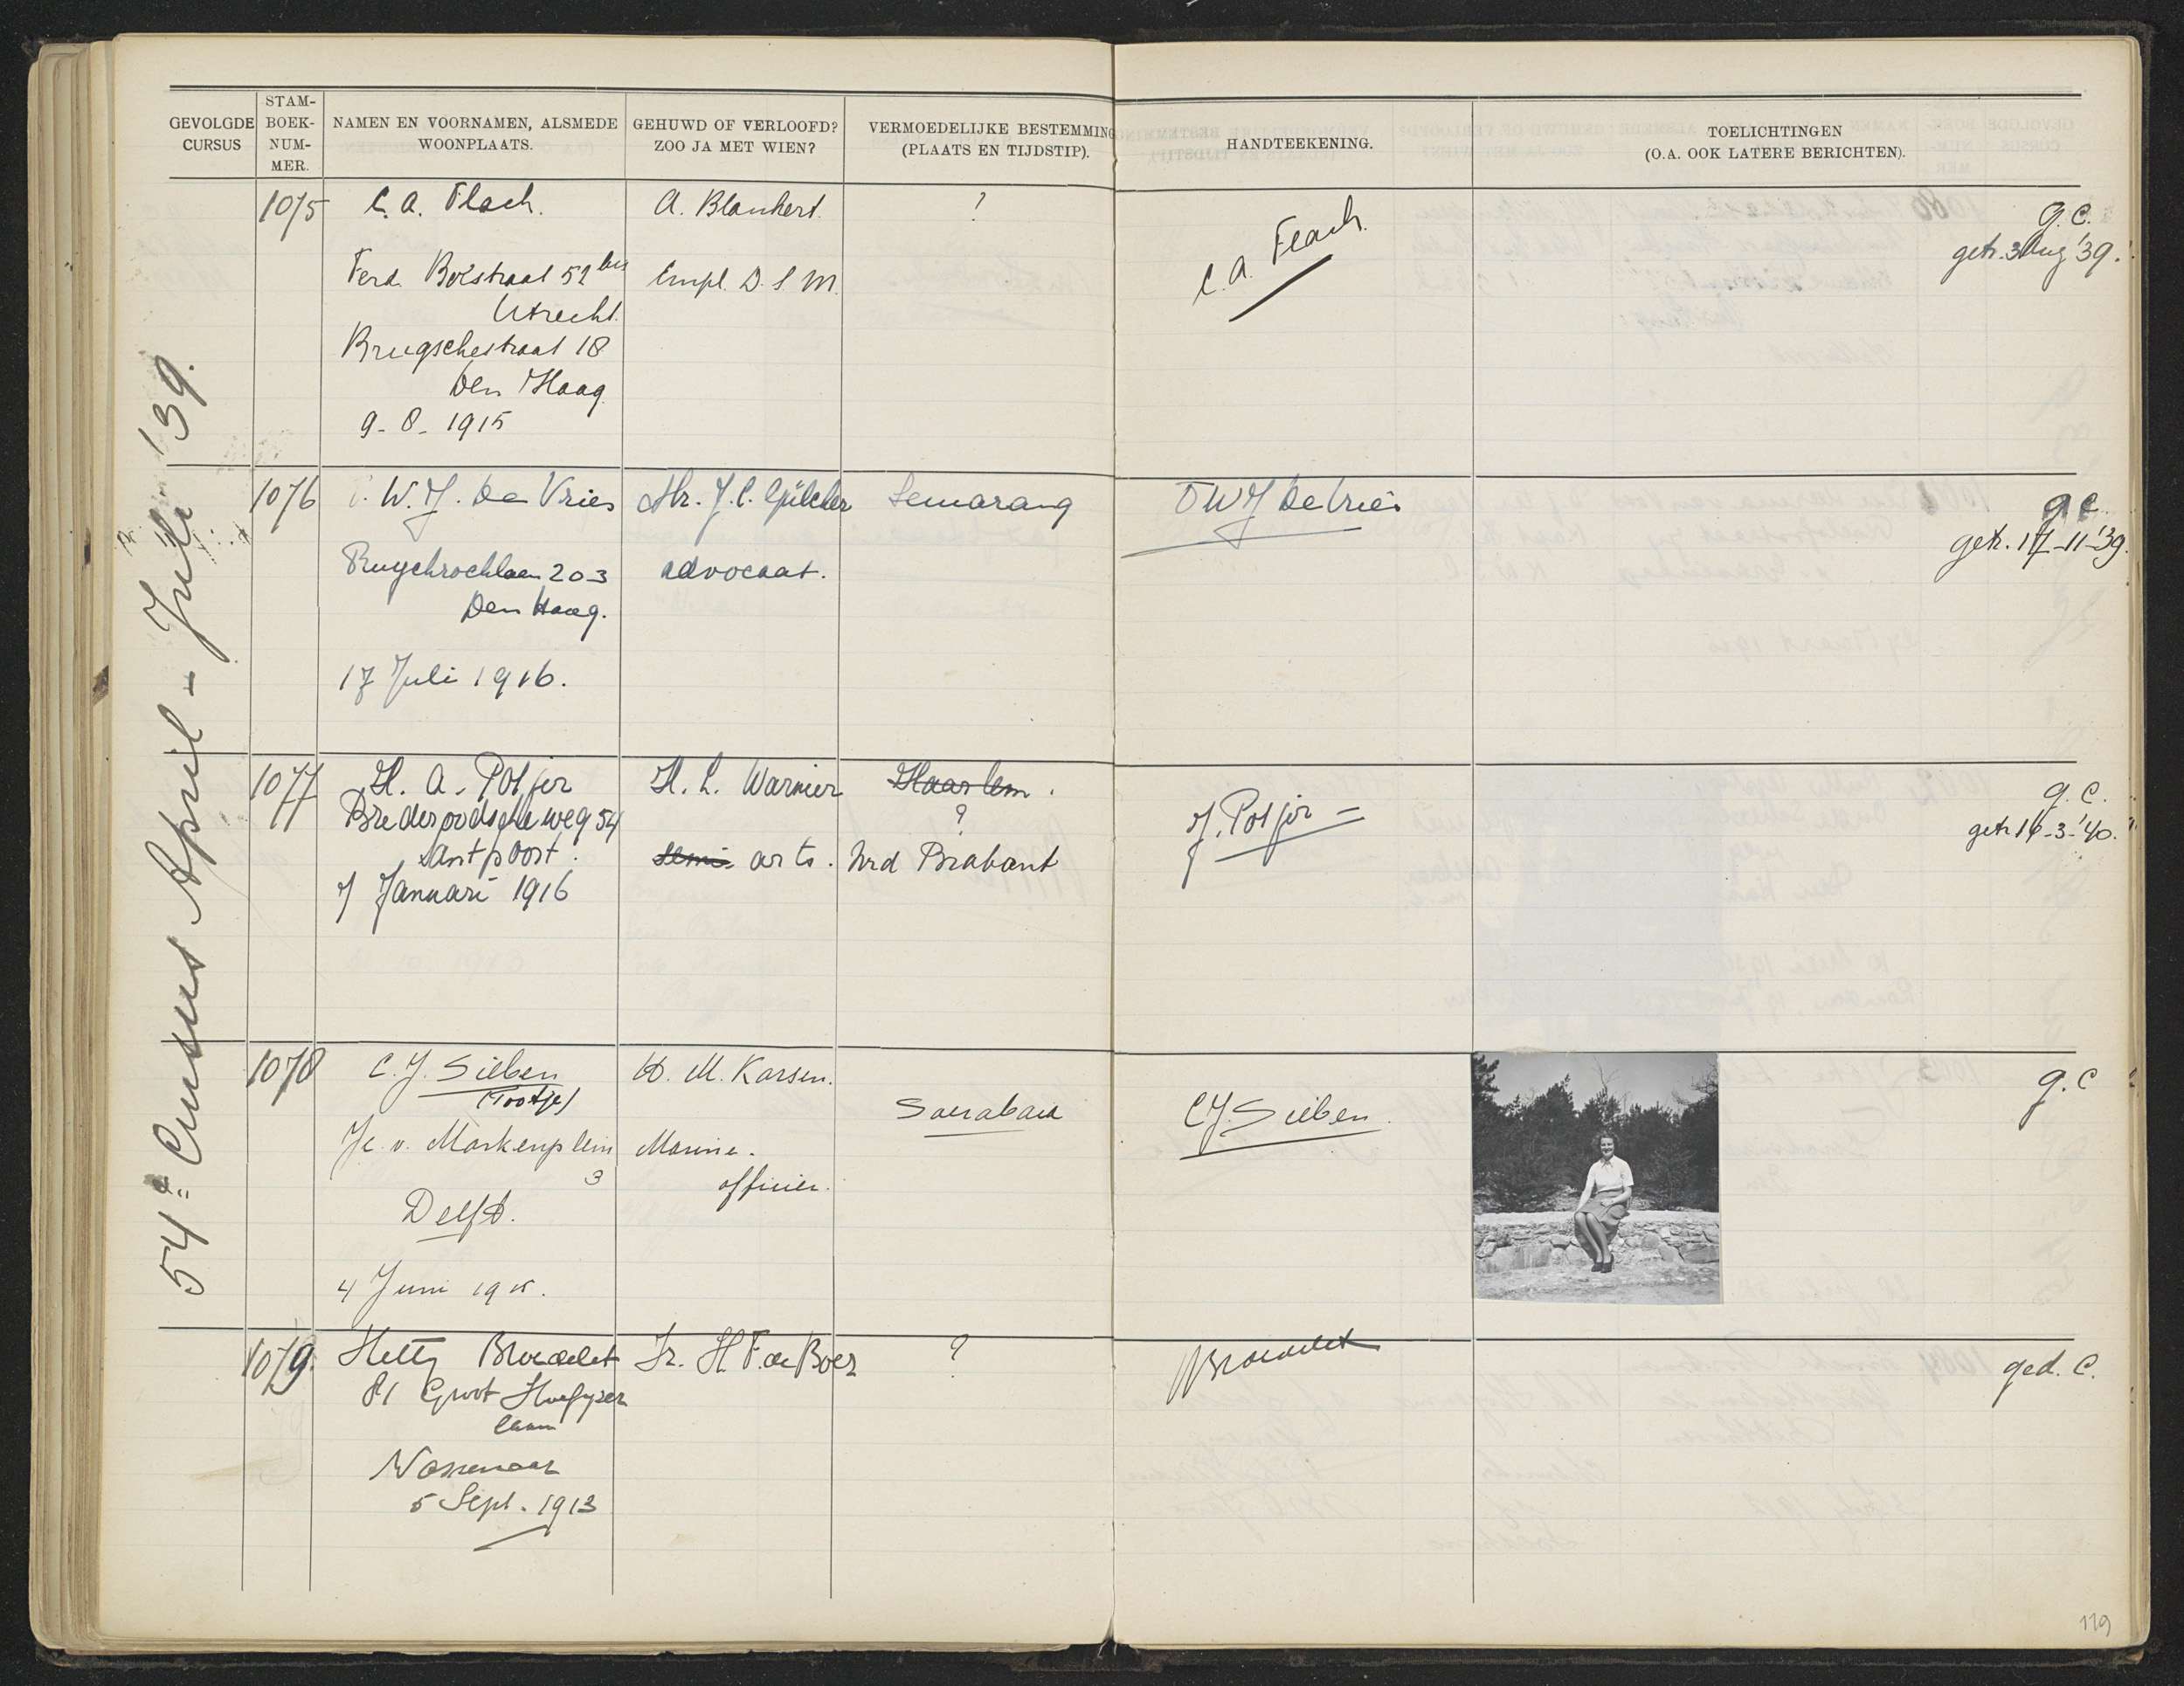 GEVOLGDE CURSUS
STAM-BOEK-NUM-MER.
NAMEN EN VOORNAMEN, ALSMEDE WOONPLAATS.
GEHUWD OF VERLOOFD? ZOO JA MET WIEN?
VERMOEDELIJKE BESTEMMING (PLAATS EN TIJDSTIP).
HANDTEEKENING.
TOELICHTINGEN (O.A. OOK LATERE BERICHTEN).
54e Cursus April - Juli '39.
1075
C. A. Flach.
Ferd. Bolstraat 52 bis
Utrecht.
Brugschestraat 18
Den Haag
9-8-1915
A. Blankert.
Empl. D. S. M.
?
C. A. Flach.
g. C.
getr. 3 Aug '39.
1076
W. J. De Vries
Ruychrocklaan 203
Den Haag.
17 Juli 1916.
Mr. J. C. Gülcher
advocaat.
Semarang
W J de Vries
g C.
getr. 17-11-'39.
1077
H. A. Potjer
Brederoodscheweg 54
Santpoort.
7 Januari 1916
H. L. Warnier
semi arts.
Haarlem.
?
Nrd Brabant
J. Potjer
g. C.
getr 16-3-'40.
1078
C. J. Sieben
(Tootje)
J. C. v. Markenplein
3
Delft.
4 Juni 1915.
H. M. Karsen.
Marine-
officier.
Soerabaia
C J. Sieben.
g. C
1079.
Hetty Broedelet
81 Groot Hoefyzer
laan
Wassenaar
5 Sept. 1913
Ir. H F. de Boer
?
Broedelet
ged. C.
119